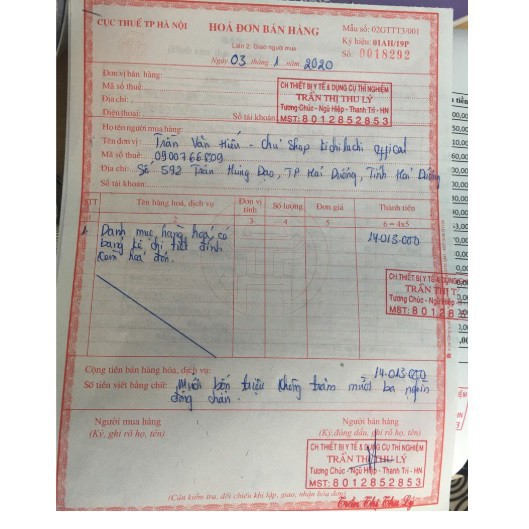 CỤC THUẾ TP HÀ NỘI
HOÁ ĐƠN BÁN HÀNG
Mẫu số: 02GTTT3/001
Liên 2: Giao người mua
Ký hiệu: 01AH/19P
Số: 0018292
Ngày 03 tháng 1 năm 2020
Đơn vị bán hàng:
Mã số thuế:
Địa chỉ:
Điện thoại: Số tài khoản:
CH THIẾT BỊ Y TẾ & DỤNG CỤ THÍ NGHIỆM
TRẦN THỊ THU LÝ
Tương Chúc - Ngũ Hiệp - Thanh Trì - HN
MST: 8012852853
Họ tên người mua hàng:
Tên đơn vị: Trần Văn Hiếu - Chủ shop lichilachi offical
Mã số thuế: 0900766809
Địa chỉ: Số 592 Trần Hưng Đạo, TP Hải Dương, Tỉnh Hải Dương
Số tài khoản:
STT Tên hàng hoá, dịch vụ Đơn vị tính Số lượng Đơn giá Thành tiền
2 3 4 5 6 = 4x5
1 Danh mục hàng hoá có 14.013.000
bảng kê chi tiết đính
kèm hoá đơn.
CH THIẾT BỊ Y TẾ & DỤNG
TRẦN THỊ T
Tương Chúc - Ngũ Hiệp
MST: 80128
Cộng tiền bán hàng hóa, dịch vụ: 14.013.000
Số tiền viết bằng chữ: Mười bốn triệu không trăm mười ba nghìn
đồng chẵn.
Người mua hàng
(Ký, ghi rõ họ, tên)
Người bán hàng
(Ký, đóng dấu, ghi rõ họ, tên)
CH THIẾT BỊ Y TẾ & DỤNG CỤ THÍ NGHIỆM
TRẦN THỊ THU LÝ
Tương Chúc - Ngũ Hiệp - Thanh Trì - HN
MST: 8012852853
Trần Thị Thu Lý
(Cần kiểm tra, đối chiếu khi lập, giao, nhận hóa đơn)